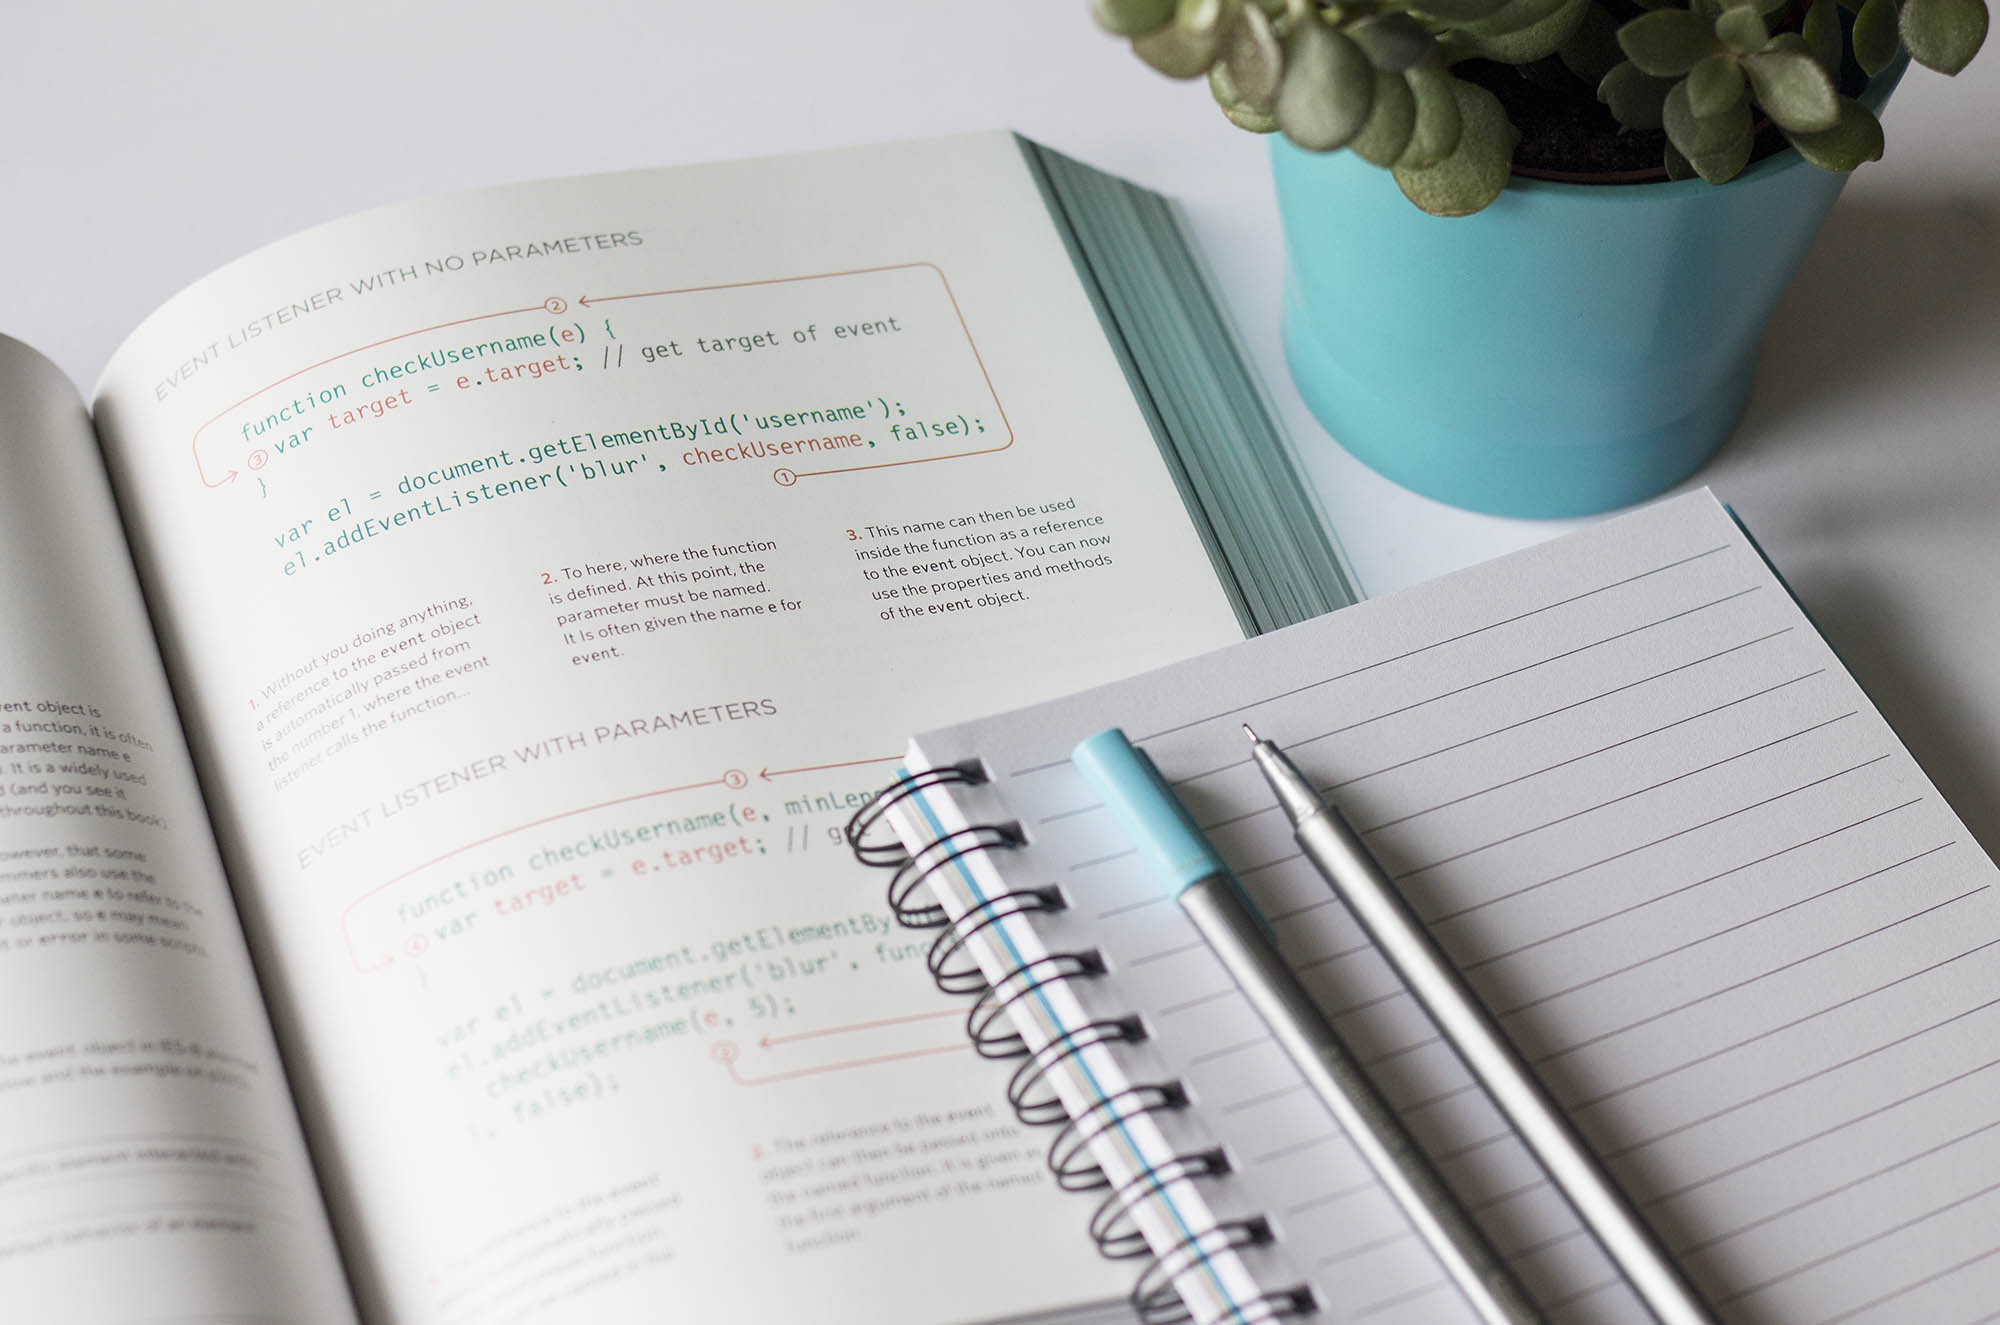 EVENT LISTENER WITH NO PARAMETERS
2
function checkUsername(e) {
3 var target = e.target; // get target of event
}
var el = document.getElementById('username');
el.addEventListener('blur', checkUsername, false);
1
1. Without you doing anything,
a reference to the event object
is automatically passed from
the number 1, where the event
listener calls the function...
2. To here, where the function
is defined. At this point, the
parameter must be named.
It Is often given the name e for
event.
3. This name can then be used
inside the function as a reference
to the event object. You can now
use the properties and methods
of the event object.
EVENT LISTENER WITH PARAMETERS
3
function checkUsername(e, minLen
4 var target = e.target; // g
}
var el = document.getElementBy
el.addEventListener('blur', func
checkUsername(e, 5);
}, false);
2
2. The reference to the event
object can then be passed onto
the named function. It is given as
the first argument of the named
function.
vent object is
a function, it is often
arameter name e
. It is a widely used
d (and you see it
throughout this book).
owever, that some
mmers also use the
eter name e to refer to the
object, so e may mean
t or error in some scripts.